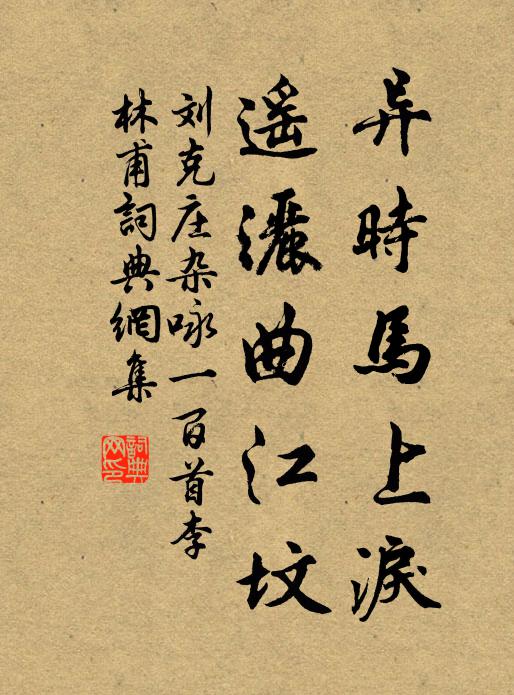 异時馬上淚
遥灑曲江坟
刘克庄杂咏一百首李
林甫詞典網集
詞典网印